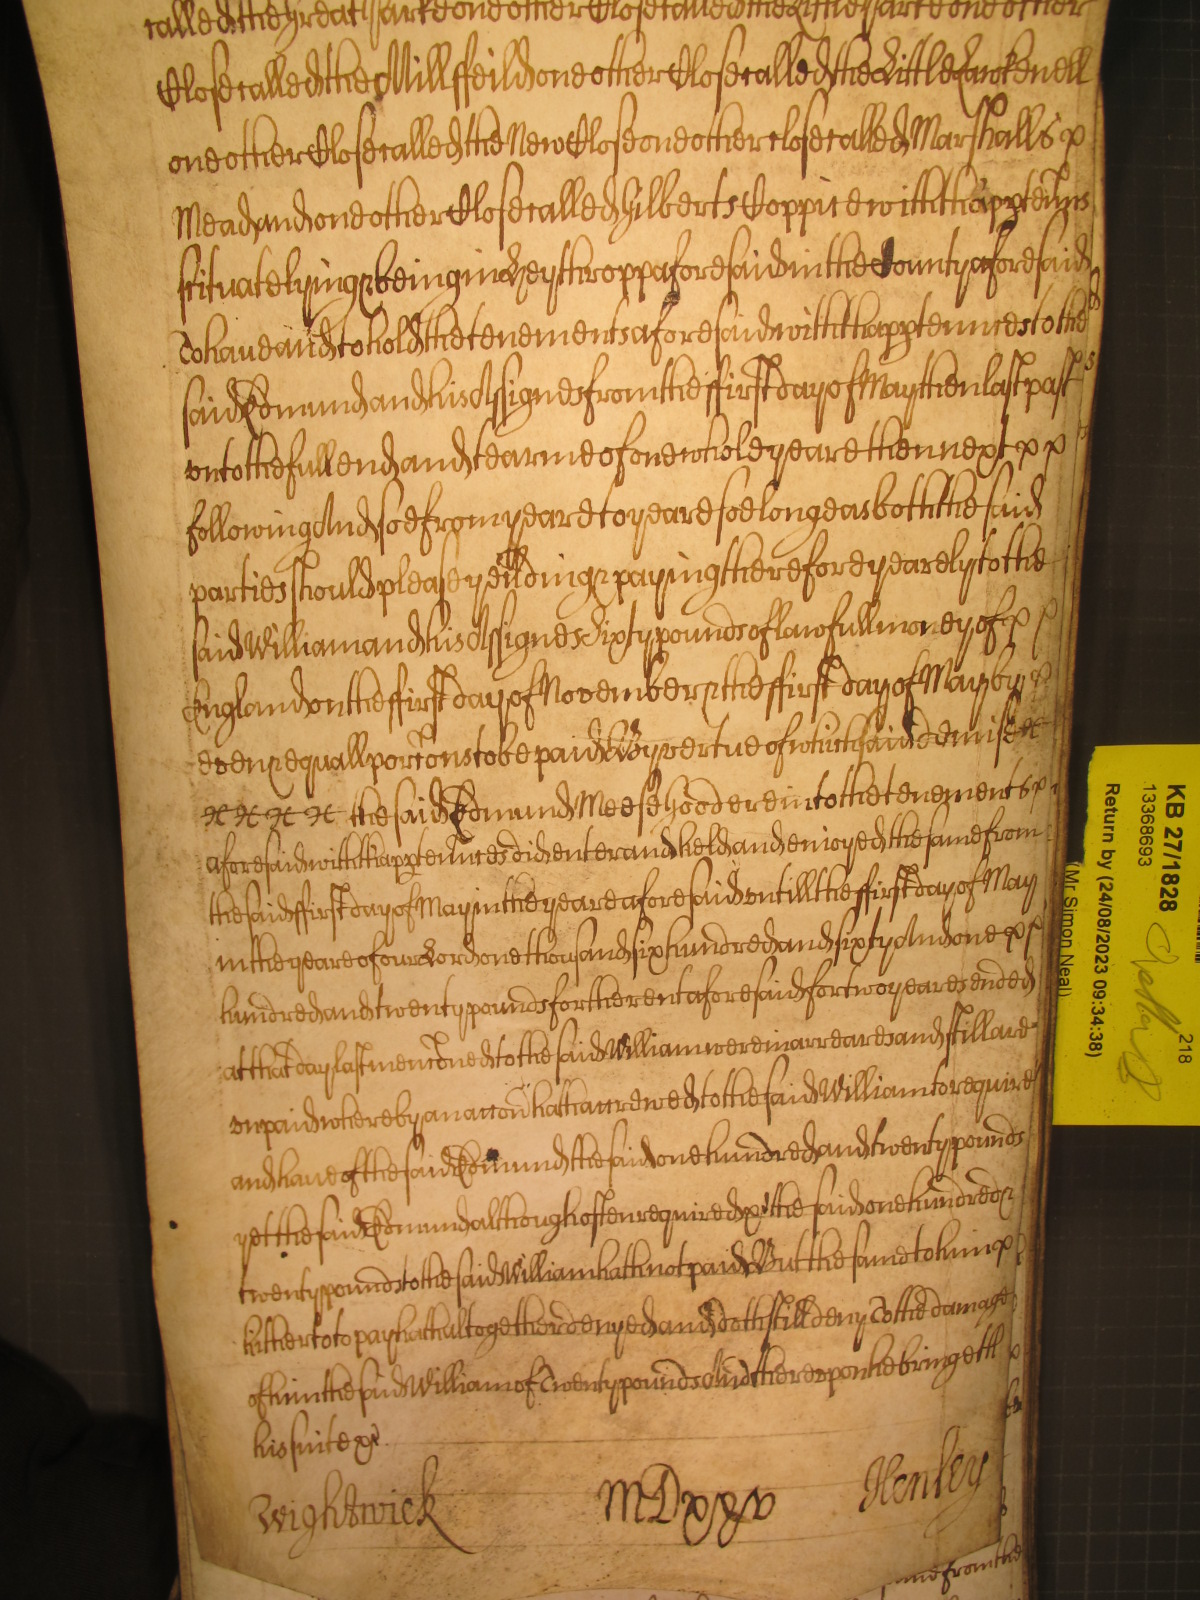 called the Great Parke one other Close called the Little Parke one other
Close called the Mill ffeild one other Close called the Little Cuckenell
one other Close called the New Close one other close called Marshalls
Mead and one other Close called Gilberts Coppice with thapptenñces
scituate lying & being in Leysthropp aforesaid in the County aforesaid
To have and to hold the tenements aforesaid with thapptennces to the
said Edmund and his Assignes from the ffirst day of May then last past
unto the full end and tearme of one whole yeare then next
following And soe from yeare to yeare soe long as both the said
parties should please yeilding & paying therefore yearely to the
said William and his Assignes Sixty pounds of lawfull money of
England on the ffirst day of November & the ffirst day of May by
even & equall porcõns to be paid By vertue of which said demise
the said Edmund Meese hoode re into the tenements
aforesaid with thapptennces did enter and held and enioyed the same from
the said ffirst day of May in the yeare aforesaid untill the ffirst day of May
in the yeare of our Lord one thousand six hundred and sixty And one
hundred and twenty pounds for the rent aforesaid for two yeares ended
at that day last mencõned to the said William were in arreares and still are
unpaid whereby an accõn hath accrewed to the said William to require
and have of the said Edmund the said one hundred and twenty pounds
yet the said Edmund although often required &c the said one hundred &
twenty pounds to the said William hath not paid But the same to him
hitherto to pay hath altogether denyed and doth still deny To the damage
of him the said William of Twenty pounds And thereupon he bringeth
his suite &c
Wightwick MDxxv Henley
same from the
KB 27/1828
13368693
218
Return by (24/08/2023 09:34:38)
(Mr Simon Neal)